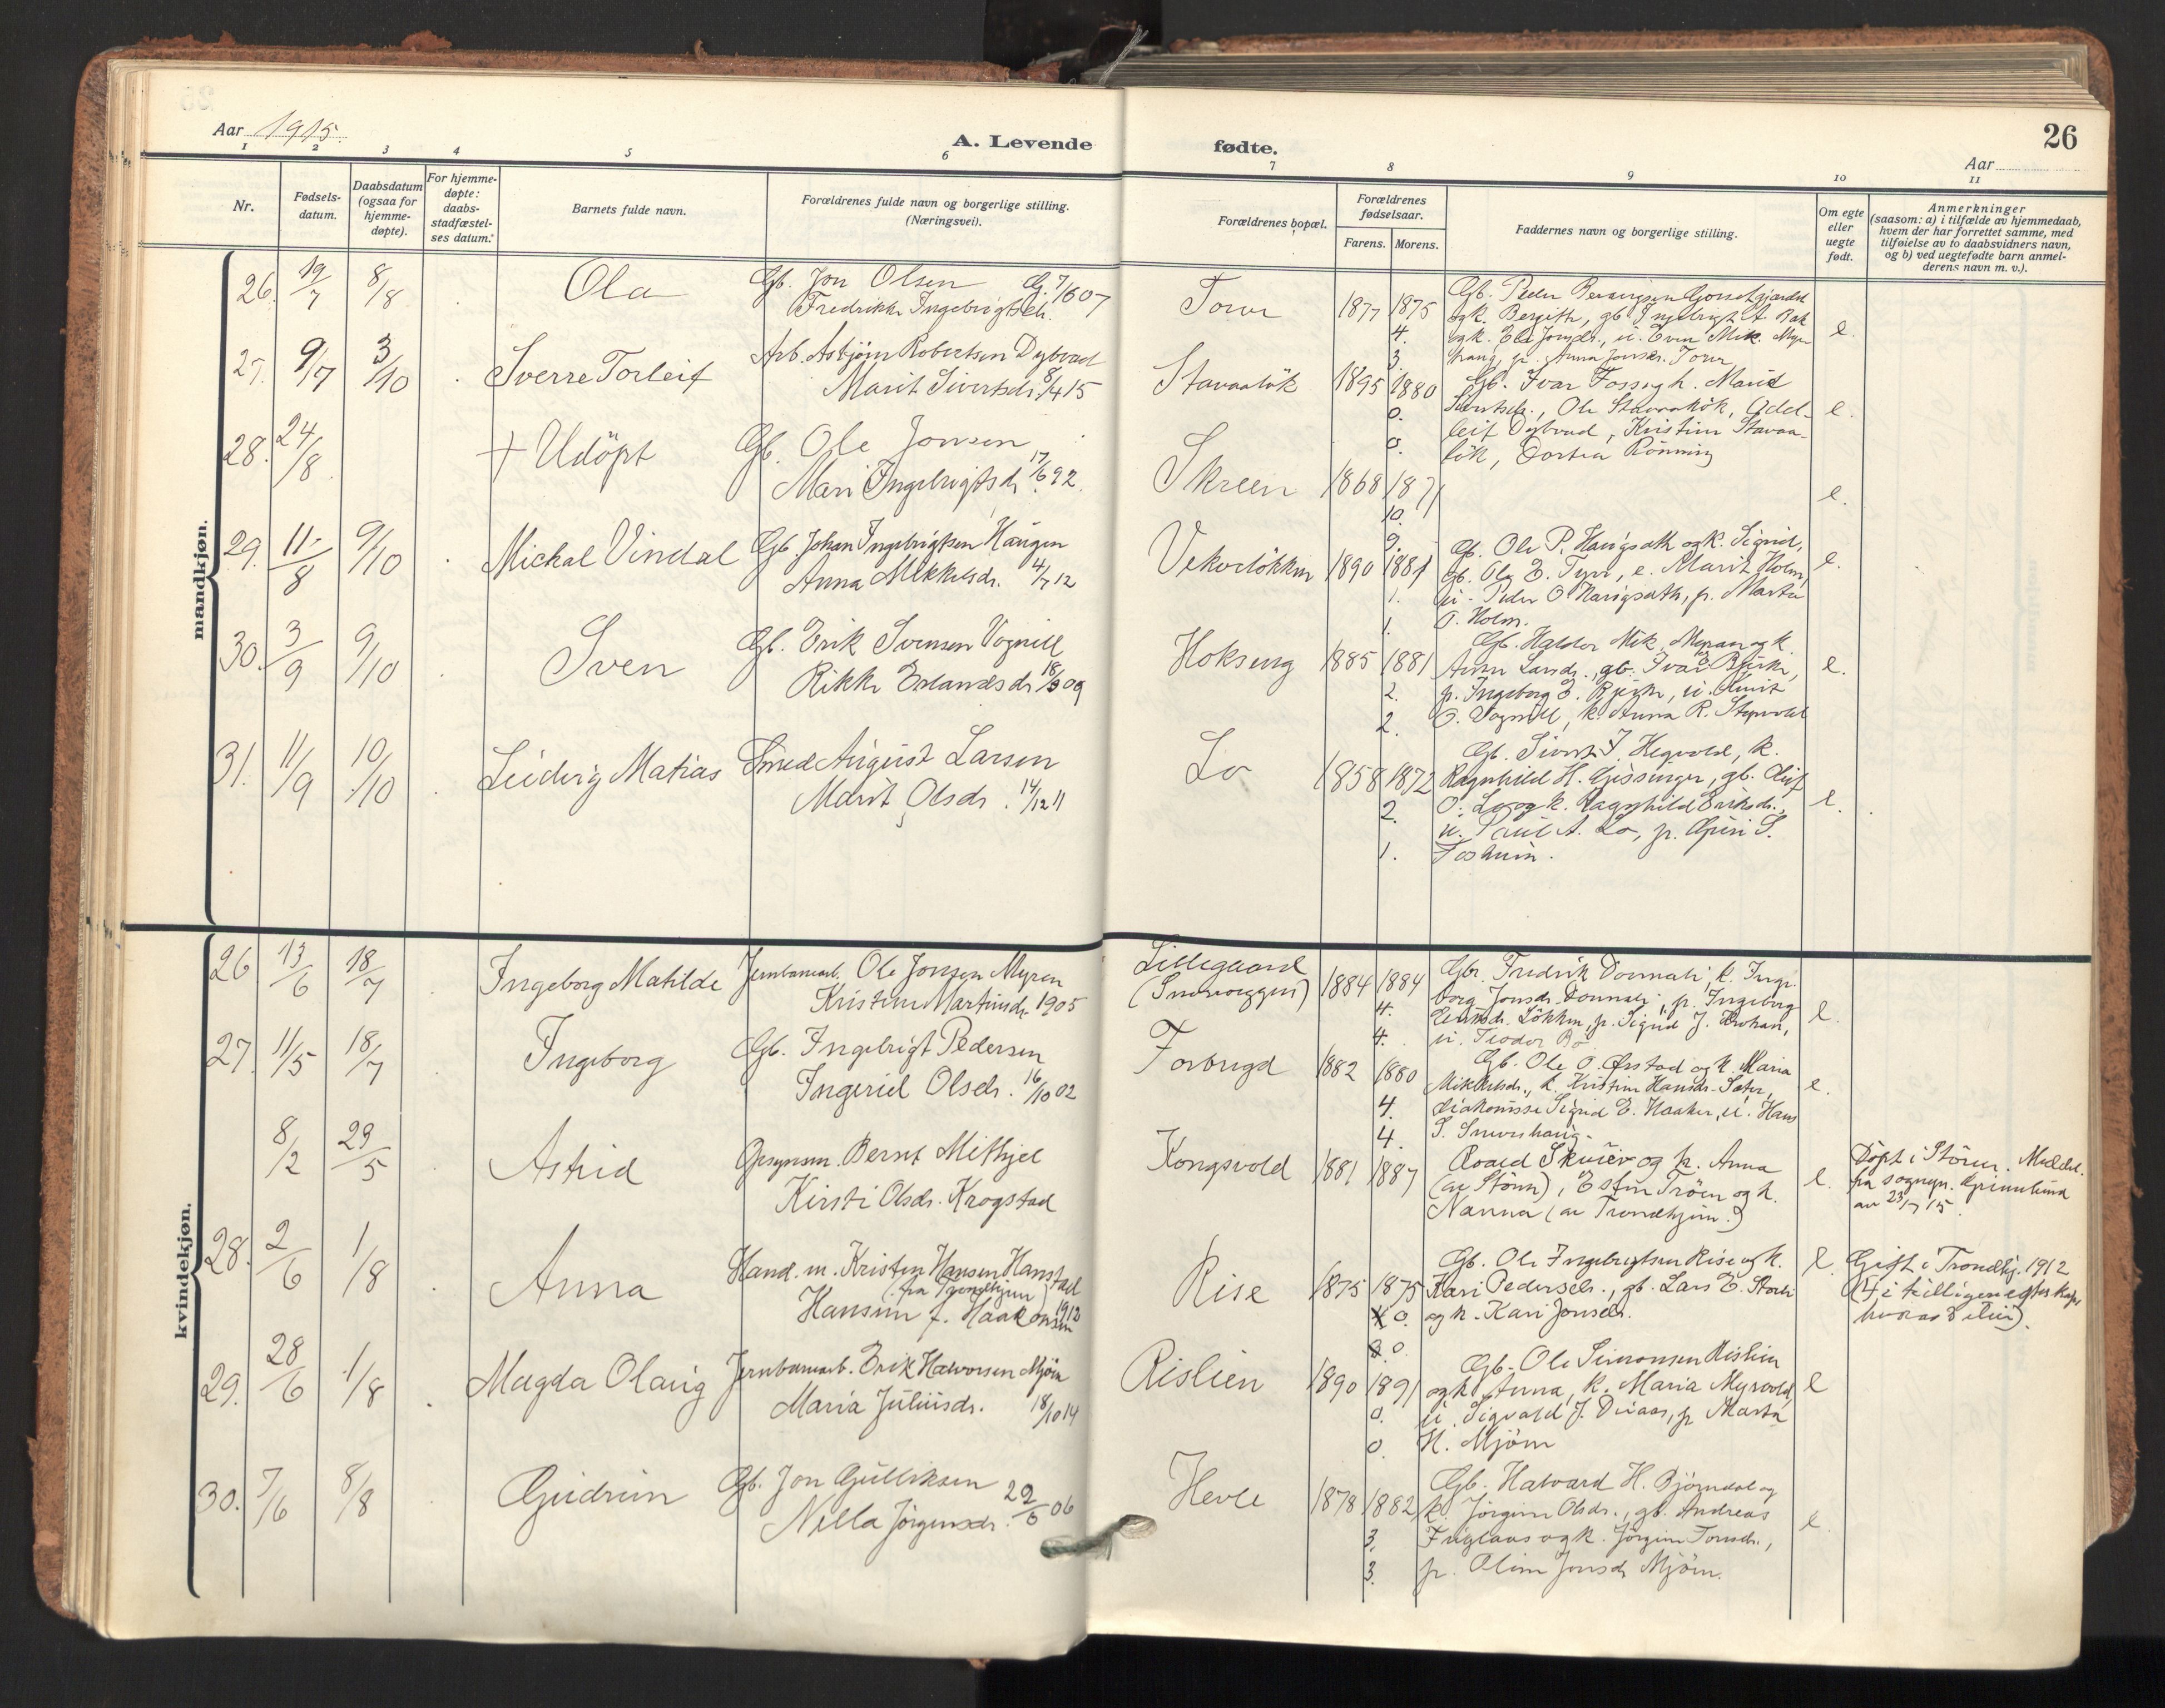 26
Aar 1915.
A. Levende fødte.
Aar
1 2 3 4 5 6 7 8 9 10 11
Nr.
Fødsels-
datum.
Daabsdatum
(ogsaa for
hjemme-
døpte).
For hjemme-
døpte:
daabs-
stadfæstel-
ses datum.
Barnets fulde navn.
Forældrenes fulde navn og borgerlige stilling.
(Næringsvei).
Forældrenes bopæl.
Forældrenes
fødselsaar.
Farens. Morens.
Faddernes navn og borgerlige stilling.
Om egte
eller
uegte
født.
Anmerkninger
(saasom: a) i tilfælde av hjemmedaab,
hvem der har forrettet samme, med
tilføielse av to daabsvidners navn,
og b) ved uegtefødte barn anmel-
derens navn m. v.).
mandkjøn.
26. 19/7 8/8 Ola
Gb. Jon Olsen
Fredrikke Ingebrigtsdr.
1877 1875
4.
3.
e.
27. 9/7 3/10 Sverre Torleif
Arb. Asbjørn Robertsen Dybvad
Marit Sivertsdr. 8/4 15
Stavaaløk 1895 1880
0.
0.
Gb. Ivar Foss og k. Marit
Sivertsdr., Ole Stavaaløk, Odd-
leif Dybvad, Kristine Stavaa-
løk, Dortea Rönning
e.
28. 24/8 + Udöpt
Gb. Ole Jonsen
Mari Ingebrigtsdr. 17/6 92.
Skreen 1868 1871
10.
9.
e.
29. 11/8 9/10 Michal Vindal
Gb. Johan Ingebrigtsen Haugen
Anna Mikkelsdr. 4/7 12
Vekveløkken 1890 1881
1.
1.
Gb. Ole P. Haugsath og k. Sigrid,
gb. Ole E. Tyri, e. Marit Holm,
u. Peder O. Haugsath, p. Marta
O. Holm.
e.
30. 3/9 9/10 Sven
Gb. Erik Svensen Vognill
Rikke Erlandsdr. 18/3 09
Hokseng 1885 1881
2.
2.
Gb. Haldor Mik. Myran og k.
Anne Larsdr., gb. Ivar Bjerke,
p. Ingeborg E. Bjerke, u.
O. Vognill, k. Anna R.
e.
31. 11/9 10/10 Ludvig Matias
Smed August Larsen
Marit Olsdr. 14/12 11
Lo 1858 1872
2.
1.
Gb. Sivert J. Hegvold, k.
Ragnhild H. Gissinger, gb. Oluf
O. Lo og k. Ragnhild Eriksdr.,
u. Paul A. Lo, p. Guri S.
e.
kvindekjøn.
26 13/6 18/7 Ingeborg Matilde
Jernbanearb. Ole Jonsen Myren
Kristine Martinsdr. 1905
Lillegaard
1884 1884
4.
4.
Gbr. Fredrik Donnali, k. Inge-
borg Jonsdr. Donnali, p. Ingeborg
Løkken, p. Sigrid J.
u. Teodor Bø
e.
27. 11/5 18/7 Ingeborg
Gb. Ingebrigt Pedersen
Ingerid Olsdr. 16/10 02
Forbregd 1882 1880
4.
4.
Gb. Ole O. Ørstad og k. Maria
Mikkelsdr., k. Kristine Hansdr. Sæter,
diakonisse Sigrid E. Haaker, u. Hans
S. Snoveshaug.
e.
8/2 23/5 Astrid
Opsynsm. Bernt Mithjel
Kirsti Olsdr. Krogstad
Kongsvold 1881 1887
Roald Skuiev og k. Anna
(av Stören), Esten Tröen og k.
Nanna (av Trondhjem.)
e.
Döpt i Stören. Meddel.
fra sognepr. Grimelund
av 23/7 15.
28. 2/6 1/8 Anna
Hand. m. Kristen Hansen Hanstad
(fra Trondhjem)
Hansine f. Haakonsen 1912
Rise 1875 1875
0.
0.
Gb. Ole Ingebrigtsen Rise og k.
Kari Pedersdr., gb. Lars E. Storli
og k. Kari Jonsdr.
e.
Gift i Trondhj. 1912
29. 28/6 1/8 Magda Olaug
Jernbanearb. Erik Halvorsen Mjöen
Maria Juliusdr. 18/10 14
Rislien 1890 1891
0.
0.
Gb. Ole Simonsen Rislien
og k. Anna, k. Maria Myrvold,
u. Sigvald J. Duaas, p. Marta
H. Mjöen
e
30. 7/6 8/8 Gudrun
Gb. Jon Gulliksen
Nella Jörgensdr. 22/6 06
Hevle 1878 1882
3.
3.
Gb. Halvard H. Bjørndal og
k. Jörgine Olsdr., gb. Andreas
og k. Jörgine Tomsdr.,
p. Oline Jonsdr. Mjöen.
e.